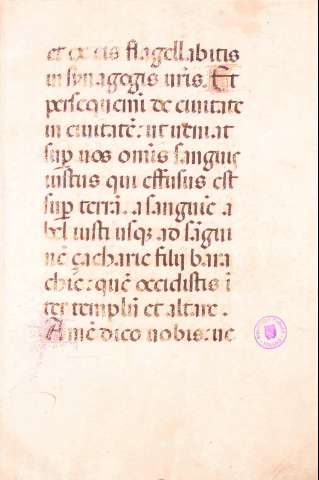 et ex eis flagellabitis
in synagogis uris. Et
persequemi de ciuitate
in ciuitatē: ut ueniat
sup uos omis sanguis
iustus qui effusus est
sup terrā. a sanguīe a
bel iusti usq; ad sāgui
nē çacharie filij bara
chie: quē occidistis ī
ter templū et altare.
Amē dico uobis: ue